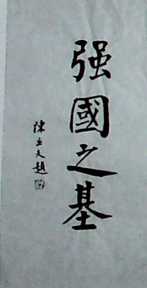 强國之基
陳立夫題